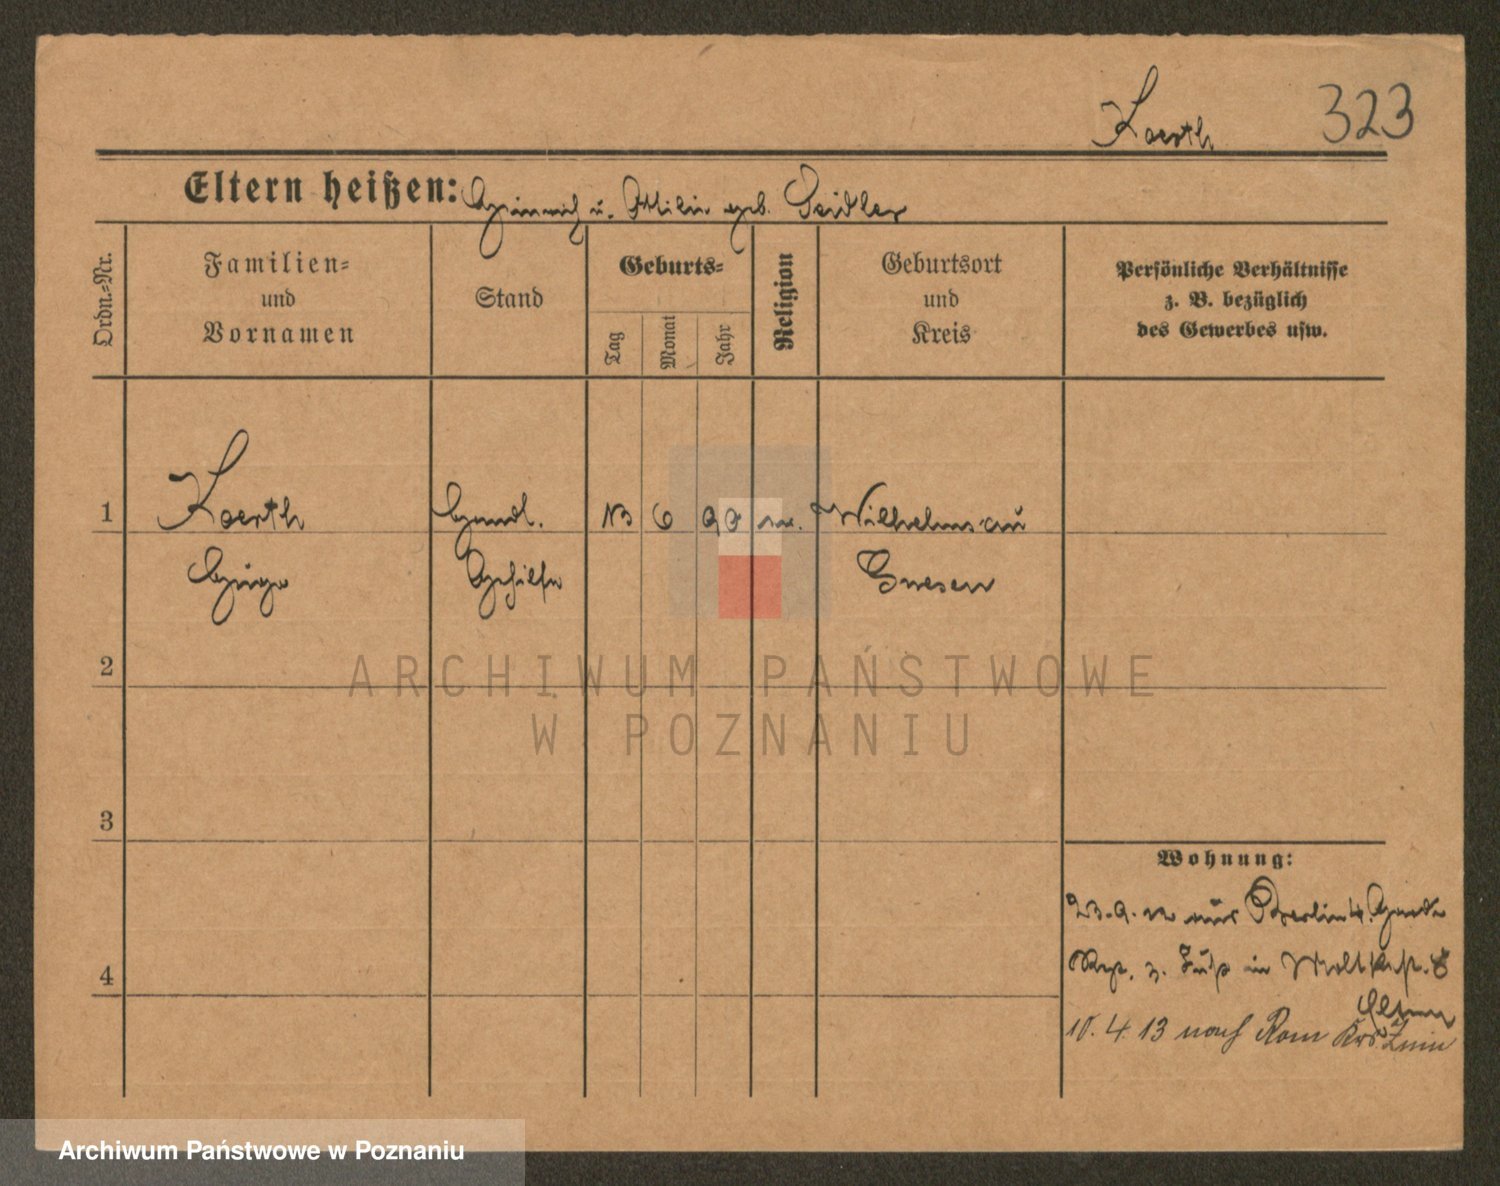 Koerth 323
Eltern heißen: Heinrich u. Ottilie geb. Seidler
Ordn.-Nr.
Familien-
und
Vornamen
Stand
Geburts-
Tag
Monat
Jahr
Religion
Geburtsort
und
Kreis
Persönliche Verhältnisse
z. B. bezüglich
des Gewerbes usw.
1 Koerth Handl. 13 6 90 Wilhelmsau
Hugo Gehilfe Gnesen
2
ARCHIWUM PAŃSTWOWE
W POZNANIU
3
Wohnung:
23.9.12 aus Berlin 4. Garde
Rgt. z. Fuß in Moltkestr. 8
4
Eltern
10.4.13 nach Rom Krs. Znin
Archiwum Państwowe w Poznaniu